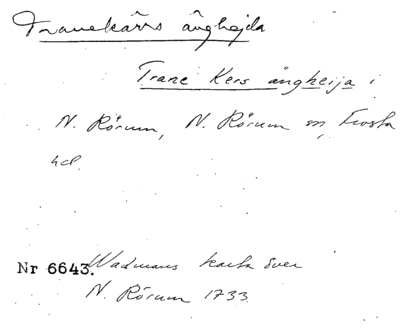 Tranekärrs änghejda
Trane Kers ängheija i
N. Rörum, N. Rörum sn, Frosta
hd.
Nr 6643. Wadmans karta över
N. Rörum 1733